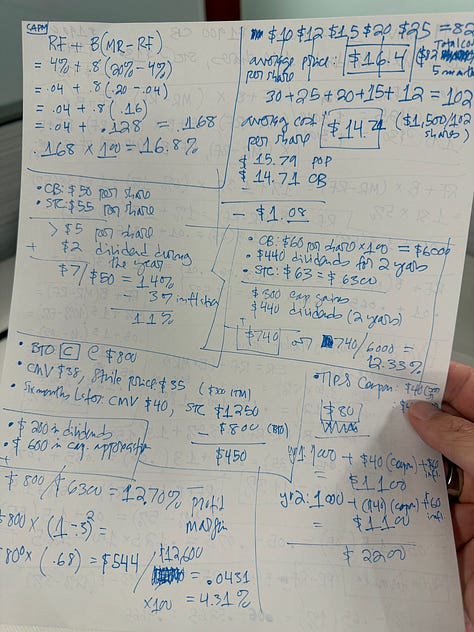 CAPM
RF + B(MR-RF)
= 4% + .8(20%-4%)
= .04 + .8(.20-.04)
= .04 + .8(.16)
= .04 + .128 = .168
.168 x 100 = 16.8%
$10 $12 $15 $20 $25 = 82
average price: $16.4
per share
30+25+20+15+12 = 102
average cost $14.71 ($1,500/102
per share shares)
$15.79 POP
$14.71 CB
- $1.08
• CB: $50 per share
• STC: $55 per share
> $5 per share
+ $2 dividend during
the year
$7/$50 = 14%
3% inflation
11%
• CB: $60 per share x 100 = $6000
• $440 dividends for 2 years
• STC: $63 = $6300
$300 cap gains
$440 dividends (2 years)
$740 or 740/6000 =
12.33%
• BTO C @ $800
• CMV $38, Strike price $35 ($300 ITM)
• Six months later: CMV $40, STC $1250
- $800 (BTO)
$450
• $200 in dividends
• $600 in cap. appreciation
$800 / 6300 = 12.70%
800 x (.68) = $544 / $12,600
= .0431
x100 = 4.31%
• TIPS Coupon: $40
$80
yr 1: 1000 + $40 (coupon) + $60
infl.
= $1100
yr 2: 1000 + $40 (coupon) + $60
infl.
= $1100
$2200